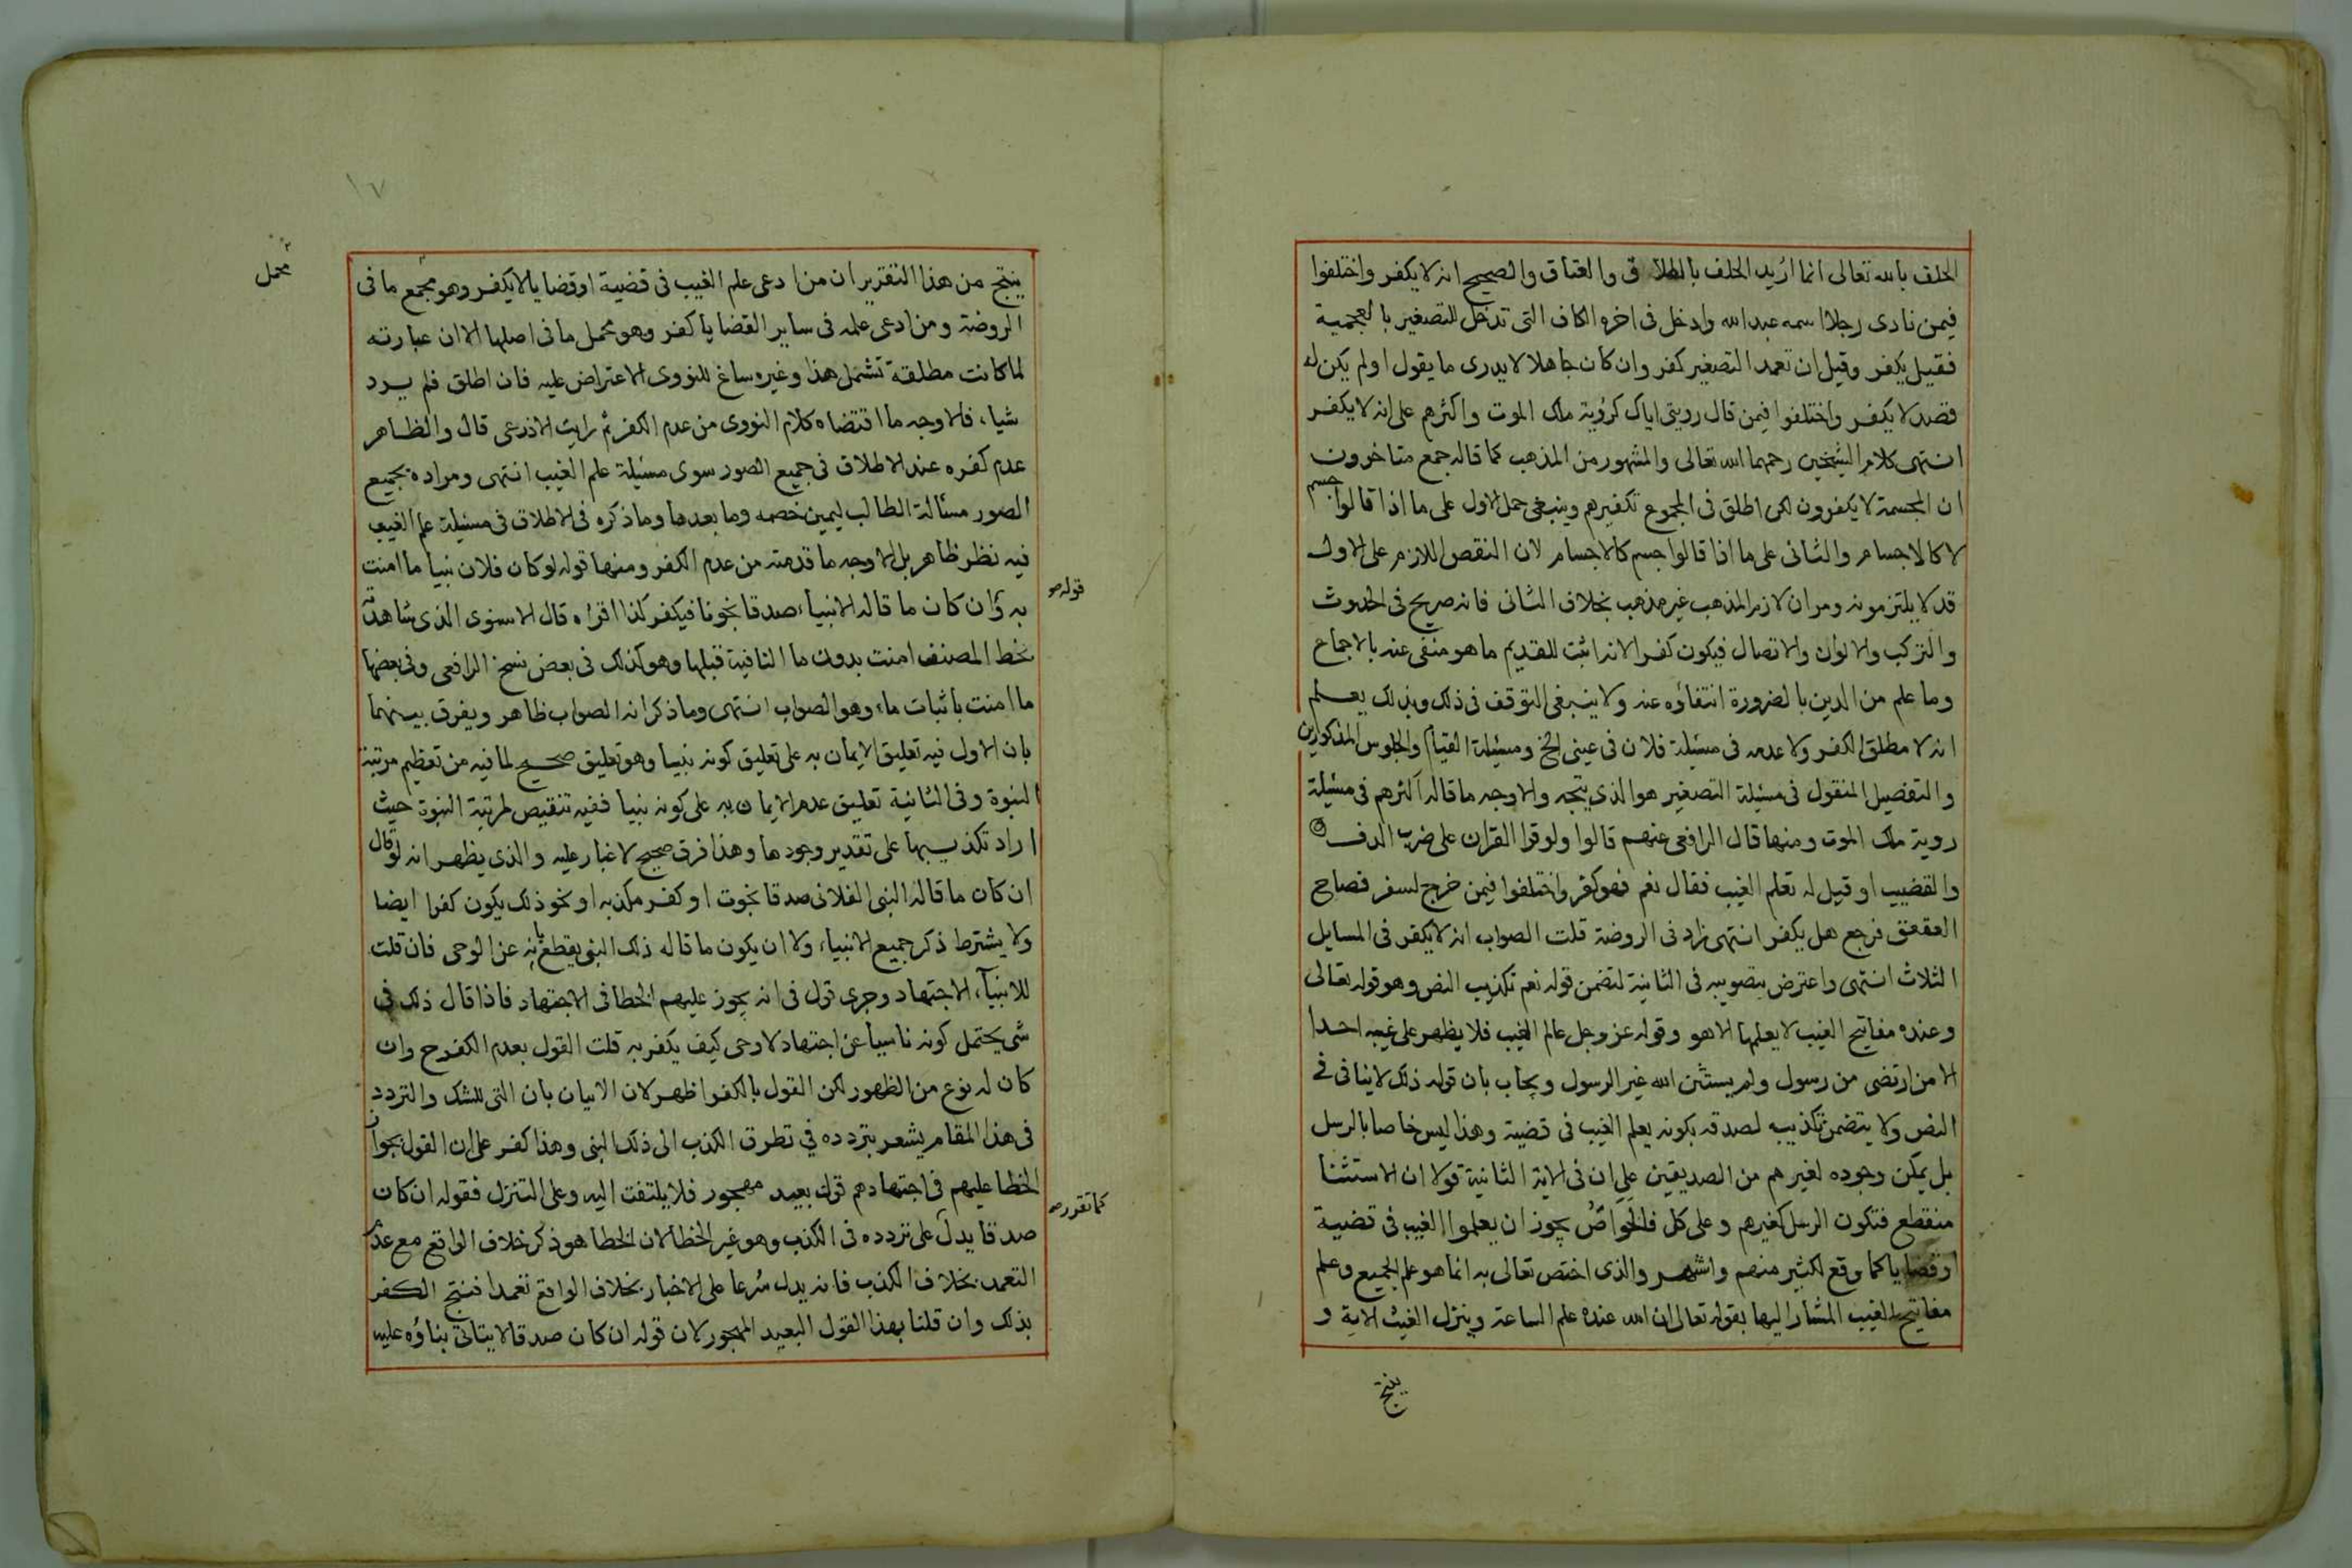 الحلف بالله تعالى انما اريد الحلف بالطلاق والعتاق والصحيح انه لا يكفر واختلفوا
فيمن نادى رجلا اسمه عبد الله وادخل في اخره الكاف التي تدخل للتصغير بالعجمية
فقيل يكفر وقيل ان تعمد التصغير كفر وان كان جاهلا لا يدرى ما يقول اولم يكن له
قصد لا يكفر واختلفوا فيمن قال رويتى اياك كرؤية ملك الموت واكثرهم على انه لا يكفر
انتهى كلام الشيخين رحمهما الله تعالى والمشهور من المذهب كما قاله جمع متاخرون
ان المجسمة لا يكفرون لكن اطلق في المجموع تكفيرهم وينبغي حمل الاول على ما اذا قالوا جسم
لا كالاجسام والثاني على ما اذا قالوا جسم كالاجسام لان النقص اللازم على الاول
قد لا يلتزمونه ومر ان لازم المذهب غير مذهب بخلاف الثاني فانه صريح في الحدوث
والتركب والالوان والاتصال فيكون كفرا لانه اثبت للقديم ما هو منفى عنه بالاجماع
وما علم من الدين بالضرورة انتفاؤه عنه ولا ينبغي التوقف في ذلك وبذلك يعلم
انه لا مطلق الكفر ولا عدمه في مسئلة فلان في عينى الخ ومسئلة القيام والجلوس المذكورين
والتفصيل المنقول في مسئلة التصغير هو الذي يتجه والاوجه ما قاله اكثرهم في مسئلة
روية ملك الموت ومنها قال الرافعي عنهم قالوا ولو قرا القران على ضرب الدف
والقضيب او قيل له تعلم الغيب فقال نعم فهو كفر واختلفوا فيمن خرج لسفر فصاح
العقعق فرجع هل يكفر انتهى زاد في الروضة قلت الصواب انه لا يكفر في المسايل
الثلاث انتهى واعترض بتصويبه في الثانية لتضمن قوله نعم تكذيب النص وهو قوله تعالى
وعنده مفاتيح الغيب لا يعلمها الا هو وقوله عز وجل عالم الغيب فلا يظهر على غيبه احدا
الا من ارتضى من رسول ولم يستثن الله غير الرسول ويجاب بان قوله ذلك لا ينافي
النص ولا يتضمن تكذيبه لصدقه بكونه يعلم الغيب في قضية وهذا ليس خاصا بالرسل
بل يمكن وجوده لغيرهم من الصديقين على ان في الاية الثانية قولا ان الاستثنا
منقطع فتكون الرسل كغيرهم وعلى كل فالخواص يجوز ان يعلموا الغيب في قضية
او قضايا كما وقع لكثير منهم واشتهر والذي اختص تعالى به انما هو علم الجميع وعلم
مفاتيح الغيب المشار اليها بقوله تعالى ان الله عنده علم الساعة وينزل الغيث الاية و
ينتج
١٧
ينتج من هذا التقرير ان من ادعى علم الغيب في قضية او قضايا لا يكفر وهو مجمع ما في
محمل
الروضة ومن ادعى علمه في ساير القضايا كفر وهو محمل ما في اصلها الا ان عبارته
لما كانت مطلقة تشمل هذا وغيره ساغ للنووى الاعتراض عليه فان اطلق فلم يرد
شيا، فالاوجه ما اقتضاه كلام النووى من عدم الكفر ثم رايت الاذرعى قال والظاهر
عدم كفره عند الاطلاق في جميع الصور سوى مسئلة علم الغيب انتهى ومراده بجميع
الصور مسألة الطالب ليمين خصمه وما بعدها وما ذكره في الاطلاق في مسئلة علم الغيب
فيه نظر ظاهر بل الاوجه ما قدمته من عدم الكفر ومنها قوله لو كان فلان نبيا ما امنت
قوله صح
به وان كان ما قاله الانبياء صدقا نجونا فيكفر كذا اقراه قال الاسنوى الذى شاهدته
بخط المصنف امنت بدون ما النافية قبلها وهو كذلك في بعض نسخ الرافعى وفي بعضها
ما امنت باثبات ما، وهو الصواب انتهى وما ذكر انه الصواب ظاهر ويفرق بينهما
بان الاول فيه تعليق الايمان به على تعليق كونه نبيا وهو تعليق صحيح لما فيه من تعظيم مرتبة
النبوة وفي الثانية تعليق عدم الايمان به على كونه نبيا ففيه تنقيص لمرتبة النبوة حيث
اراد تكذيبها على تقدير وجودها وهذا فرق صحيح لا غبار عليه والذي يظهر انه لو قال
ان كان ما قاله النبي الفلانى صدقا نجوت او كفر مكذبه او نحو ذلك يكون كفرا ايضا
ولا يشترط ذكر جميع الانبياء، ولا ان يكون ما قاله ذلك النبي يقطع بانه عن الوحى فان قلت
للانبيآء الاجتهاد وجرى قول في انه يجوز عليهم الخطا في الاجتهاد فاذا قال ذلك في
شى يحتمل كونه ناشيا عن اجتهاد لا وحى كيف يكفر به قلت القول بعدم الكفر ح وان
كان له نوع من الظهور لكن القول بالكفر اظهر لان الاتيان بان التي للشك والتردد
في هذا المقام يشعر بتردده في تطرق الكذب الى ذلك النبي وهذا كفر على ان القول بجواز
الخطا عليهم في اجتهادهم قول بعيد مهجور فلا يلتفت اليه وعلى التنزل فقوله ان كان
كما تقرر صح
صدقا يدل على تردده في الكذب وهو غير الخطا لان الخطا هو ذكر خلاف الواقع مع عدم
التعمد بخلاف الكذب فانه يدل شرعا على الاخبار بخلاف الواقع تعمدا فنتج الكفر
بذلك وان قلنا بهذا القول البعيد المهجور لان قوله ان كان صدقا لا يتاتى بناؤه عليه